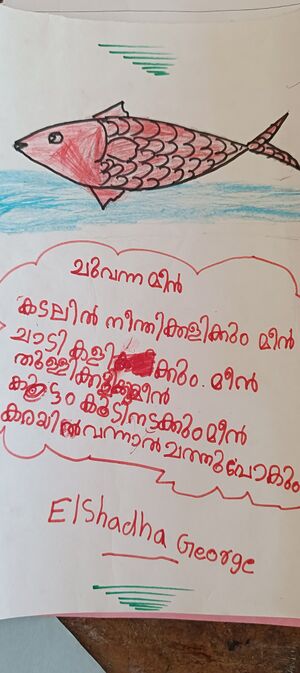 ചുവന്ന മീൻ
കടലിൻ നീന്തിക്കളിക്കും മീൻ
ചാടി കളിക്കും. മീൻ
തുള്ളിക്കളിക്കുംമീൻ
കൂട്ടം കൂടിനടക്കുംമീൻ
കരയിൽവന്നാൽ ചത്തുപോകും
ElShadha George